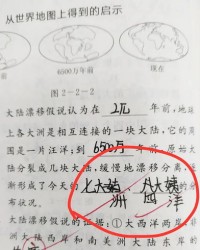 从世界地图上得到的启示
6500万年前
现在
图2-2-2
大陆漂移假说认为在 2亿 年前,地球
上各大洲是相互连接的一块大陆,它的周
围是一片汪洋;到 6500万 年前,原始大
陆分裂成几块大陆,缓慢地漂移分离,逐
渐形成了今天的 七大 洲 四 洋 的分
布状况。
大陆漂移假说的证据:①大西洋两岸
洲大陆西岸和南美洲大陆东岸的